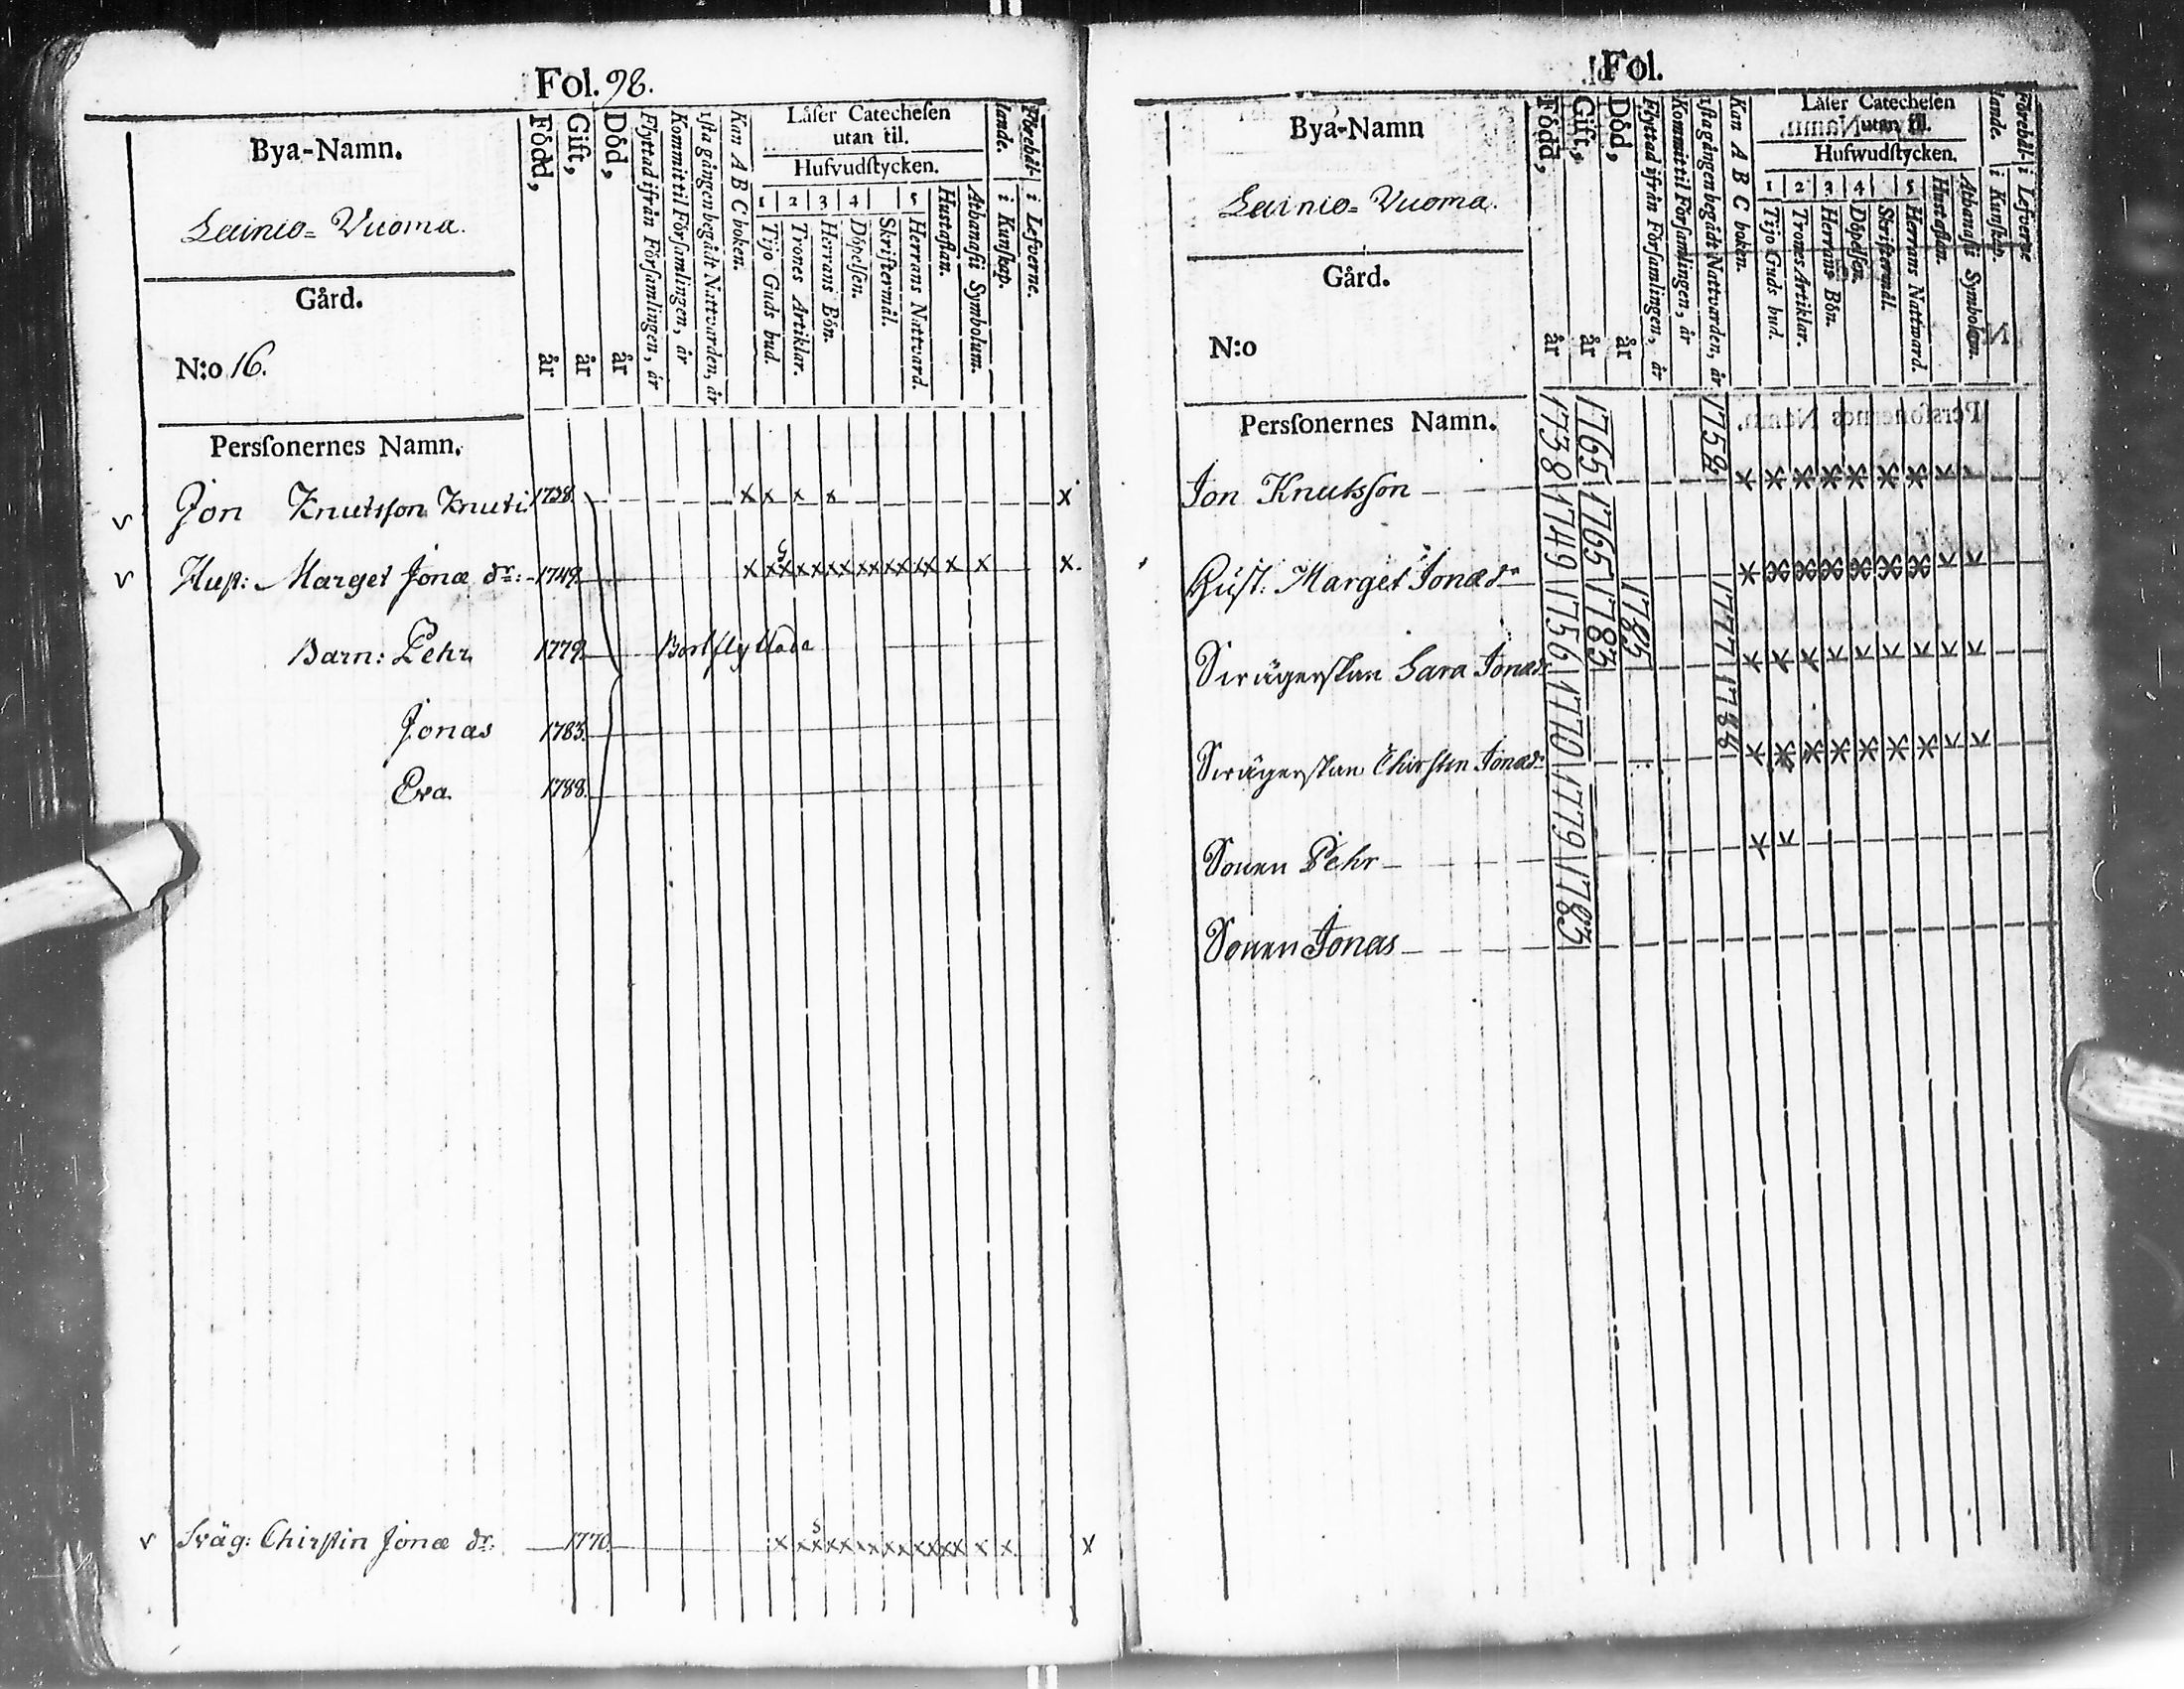 Fol. 98.
Bya-Namn.
Lainio= Vuoma.
Gård.
N:o 16.
Persſonernes Namn.
Född, år
Gift, år
Död, år
Flyttad ifrån Förſamlingen, år
Kommit til Förſamlingen, år
1ſta gången begådt Nattvarden, år
Kan A B C boken.
Läſer Catecheſen
utan til.
Hufvudſtycken.
1 2 3 4 5
Tijo Guds bud.
Trones Artiklar.
Herrans Bön.
Döpelſen.
Skriftermål.
Herrans Nattvard.
Hustaflan.
Athanaſii Symbolum.
Förehål-
lande.
i Kunſkap.
i Lefverne.
v Jon Knutsſon Knuti 1738. x x x x x
v Huſt: Marget Jonæ dr: 1749. x xxxxxxxxxxxxx x x x.
Barn: Pehr 1779. Bortflyttade
Jonas 1783.
Eva 1788.
v Sväg: Chirſtin Jonæ dr. 1770. x xxxxxxxxxxxxx x x. x
Fol.
Bya-Namn
Lainio= Vuoma.
Gård.
N:o
Persſonernes Namn.
Född, år
Gift, år
Död, år
Flyttad ifrån Förſamlingen, år
Kommit til Förſamlingen, år
1ſta gången begådt Nattvarden, år
Kan A B C boken.
Läſer Catecheſen
utan til.
Hufwudſtycken.
1 2 3 4 5
Tijo Guds bud.
Trones Artiklar.
Herrans Bön.
Döpelſen.
Skriftermål.
Herrans Nattward.
Hustaflan.
Athanaſii Symbolum.
Förehål-
lande.
i Kunſkap.
i Lefverne
Jon Knutsſon 1738 1765 1758
Huſt. Marget Jonædr 1749 1765
Swägerſkan Sara Jonædr 1756 1783 1785 1777
Swägerſkan Chirſtin Jonædr 1770
Sonen Pehr 1779
Sonen Jonas 1783